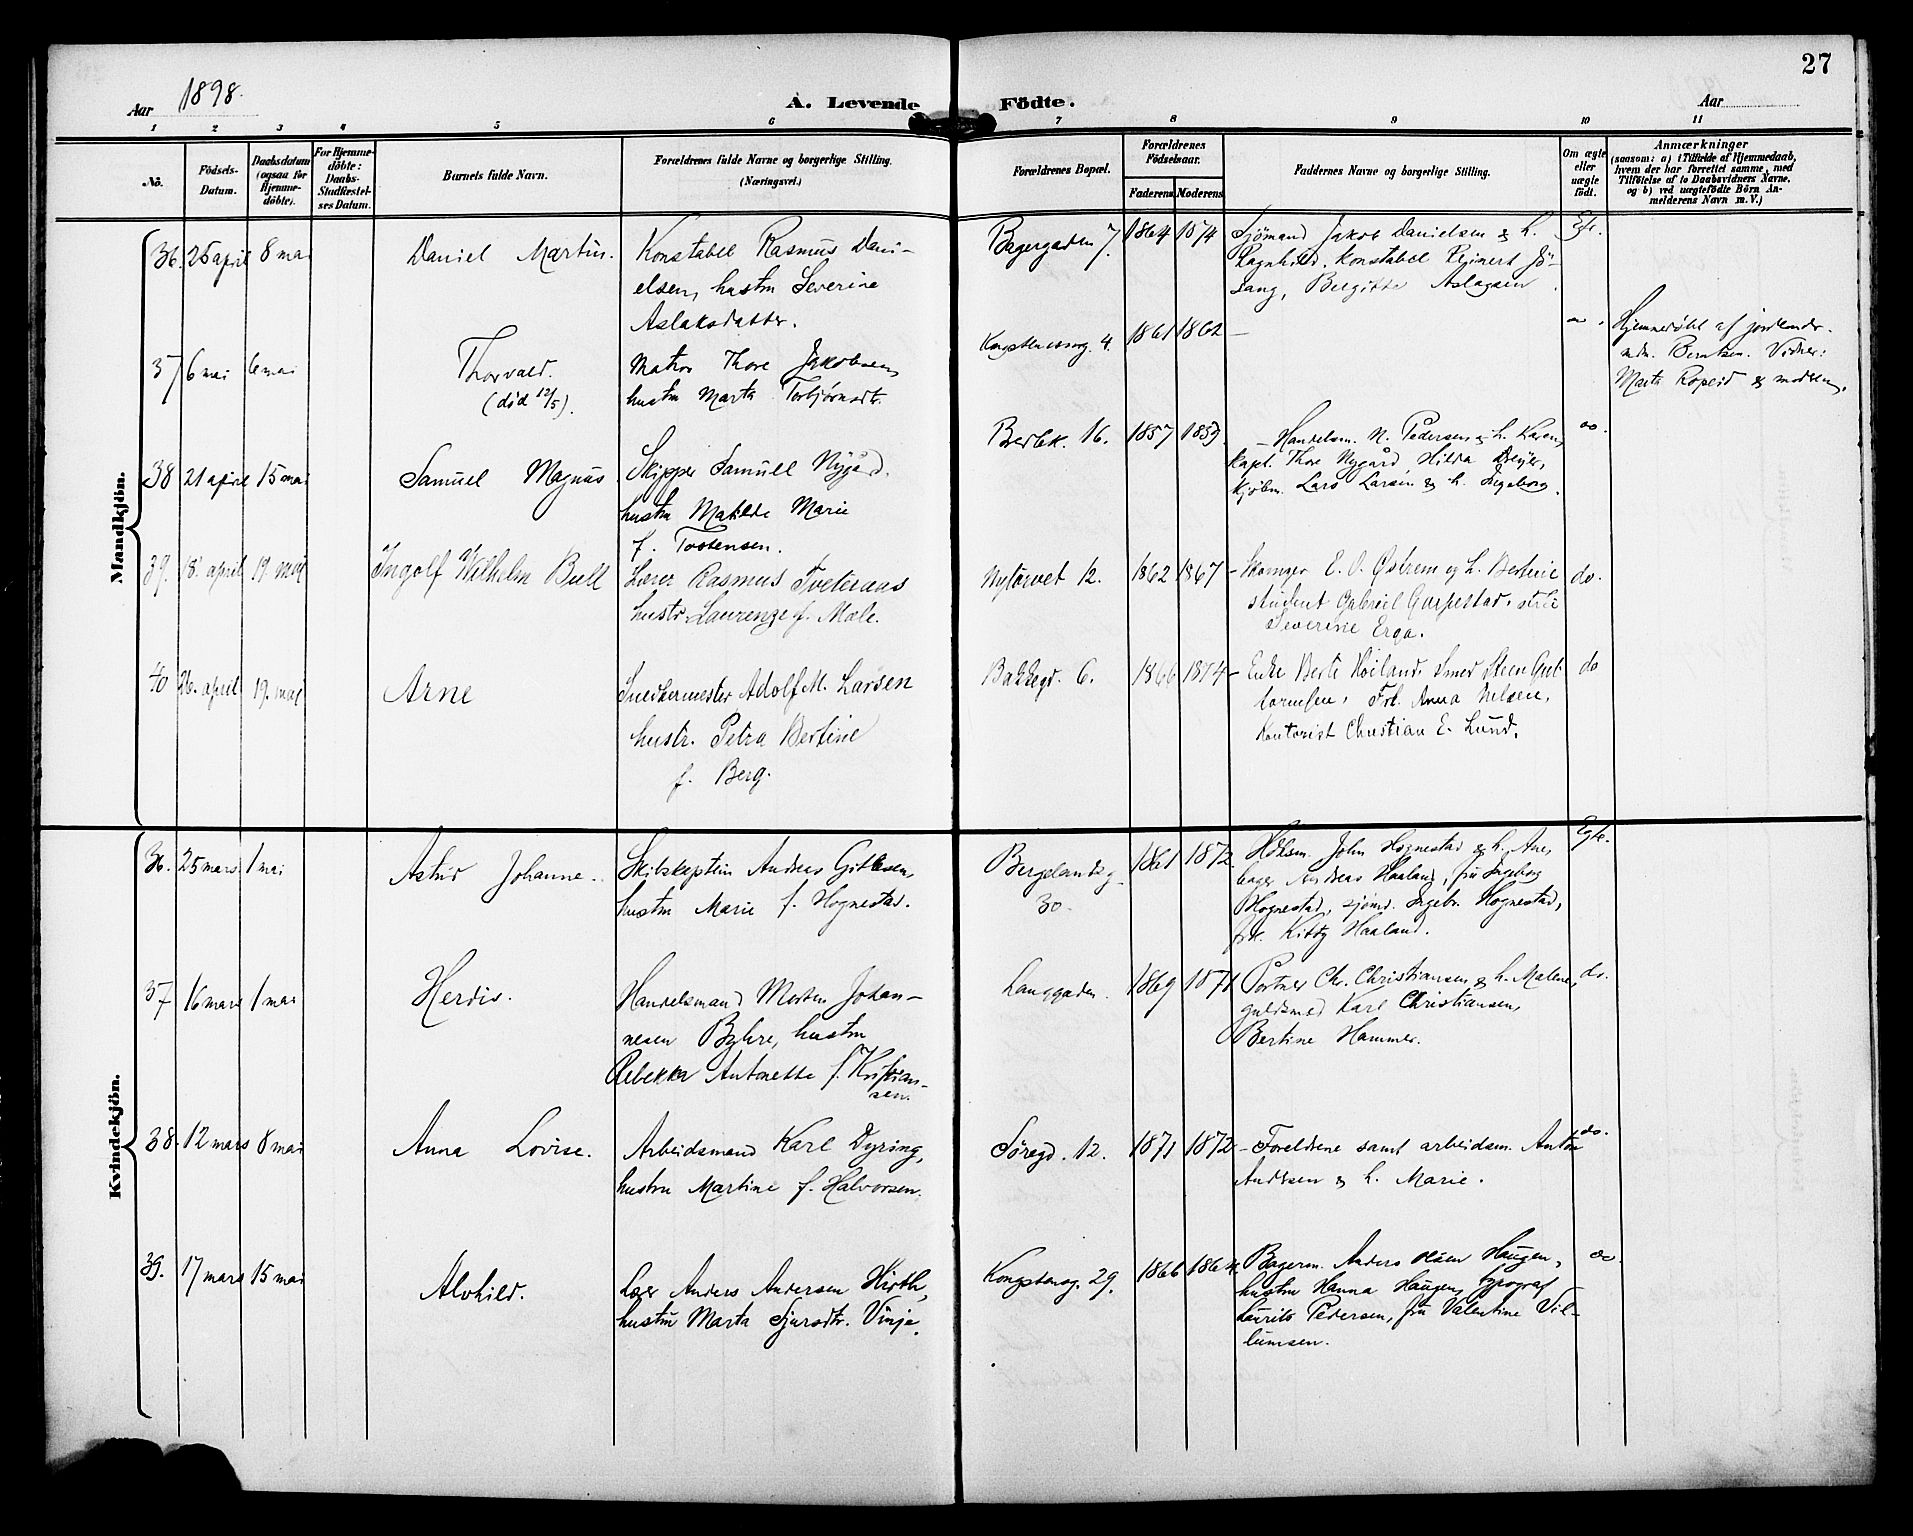 27
Aar 1898.
A. Levende Födte.
Aar
1 2 3 4 5 6 7 8 9 10 11
No.
Födsels-
Datum.
Daabsdatum
(ogsaa for
Hjemme-
döbte).
For Hjemme-
döbte:
Daabs-
Stadfæstel-
ses Datum.
Barnets fulde Navn.
Forældrenes fulde Navne og borgerlige Stilling.
(Næringsvei.)
Forældrenes Bopæl.
Forældrenes
Födselsaar.
Faderens Moderens
Faddernes Navne og borgerlige Stilling.
Om ægte
eller
uægte
födt.
Anmærkninger
(saasom: a) i Tilfælde af Hjemmedaab,
hvem der har forrettet samme, med
Tilföielse af to Daabsvidners Navne,
og b) ved uægtefödte Börn An-
melderens Navn m. V.)
Mandkjön.
36. 25 april 8 mai
Daniel Martin.
Konstabel Rasmus Dani-
elsen, hustru Severine
Aslaksdatter.
Bagergaden 7. 1864 1874
Sjömand Jakob Danielsen & h.
Ragnhild. Konstabel Reinert Jö-
sang, Bergitte Aslagsen.
Egte.
37 6 mai 6 mai
Thorvald.
(död 12/5).
Matros Thore Jakobsen,
hustru Marta Torbjörnsdtr.
Kongstensg. 4. 1861 1862 –
do.
Hjemmedöbt af jordemdr.
mdm. Berntsen. Vidner:
Marta Ropeid & modren.
38 21 april 15 mai
Samuel Magnus
Skipper Samuel Nygård.
hustru Matilde Marie
f. Tostensen.
Berbk. 16. 1857 1859.
– Handelsm. N. Pedersen & h. Karen,
kapt. Thore Nygård, Hilda Dreijer,
kjöbm. Lars Larsen & h. Ingeborg.
do.
39. 18. april 19. maj
Ingolf Wilhelm Bull
Lærer Rasmus Tveteraas
hustr. Laurenze f. Male.
Nytorvet 12. 1862 1867
– Skomager E. O. Østrem og h. Berterie
student Gabriel Garpestad,
Severine Erga.
do.
40 26. april 19. maj
Arne
Snedkermester Adolf M. Larsen
hustr. Petra Bertine
f. Berg.
Bakkegd. 6. 1866 1874
– Enke Berte Höiland, Smed Steen Gut-
tormsen, Frk. Anna Nilsen,
Kontorist Christian E. Lund.
do
Kvindekjön.
36. 25 mars 1 mai
Astrid Johanne.
Skibskaptein Andreas Gitlesen,
hustru Marie f. Hognestad.
Bergelandsg.
30.
1861 1872
Hdlsm. John Hognestad & h. Ane,
bager Andreas Haaland, fru Ingeborg
Hognestad, sjömd. Ingebr. Hognestad,
frk. Kitty Haaland.
Egte.
37 16 mars 1 mai
Herdis.
Handelsmand Morten Johan-
nesen Byhre, hustru
Rebekka Antonette f. Kristian-
sen.
Langgaden. 1869 1871
Portner Chr. Christiansen & h. Malene,
guldsmed Karl Christiansen,
Bertine Hammer.
do.
38. 12 mars 8 mai
Anna Lovise.
Arbeidsmand Karl Dyring,
hustru Martine f. Halvorsen.
Söregd. 12. 1871 1872
– Foreldrene samt arbeidsm. Anton
Andersen & h. Marie.
do.
39. 17 mars 15 mai
Alvhild.
Lærer Anders Andersen Hirth,
hustru Marta Sjursdtr. Vinje.
Kongstensg. 29. 1866 1864.
Bagerm. Anders Olsen Haugen,
hustru Hanna Haugen, typograf
Laurits Pedersen, fru Valentine Vil-
lumsen.
do